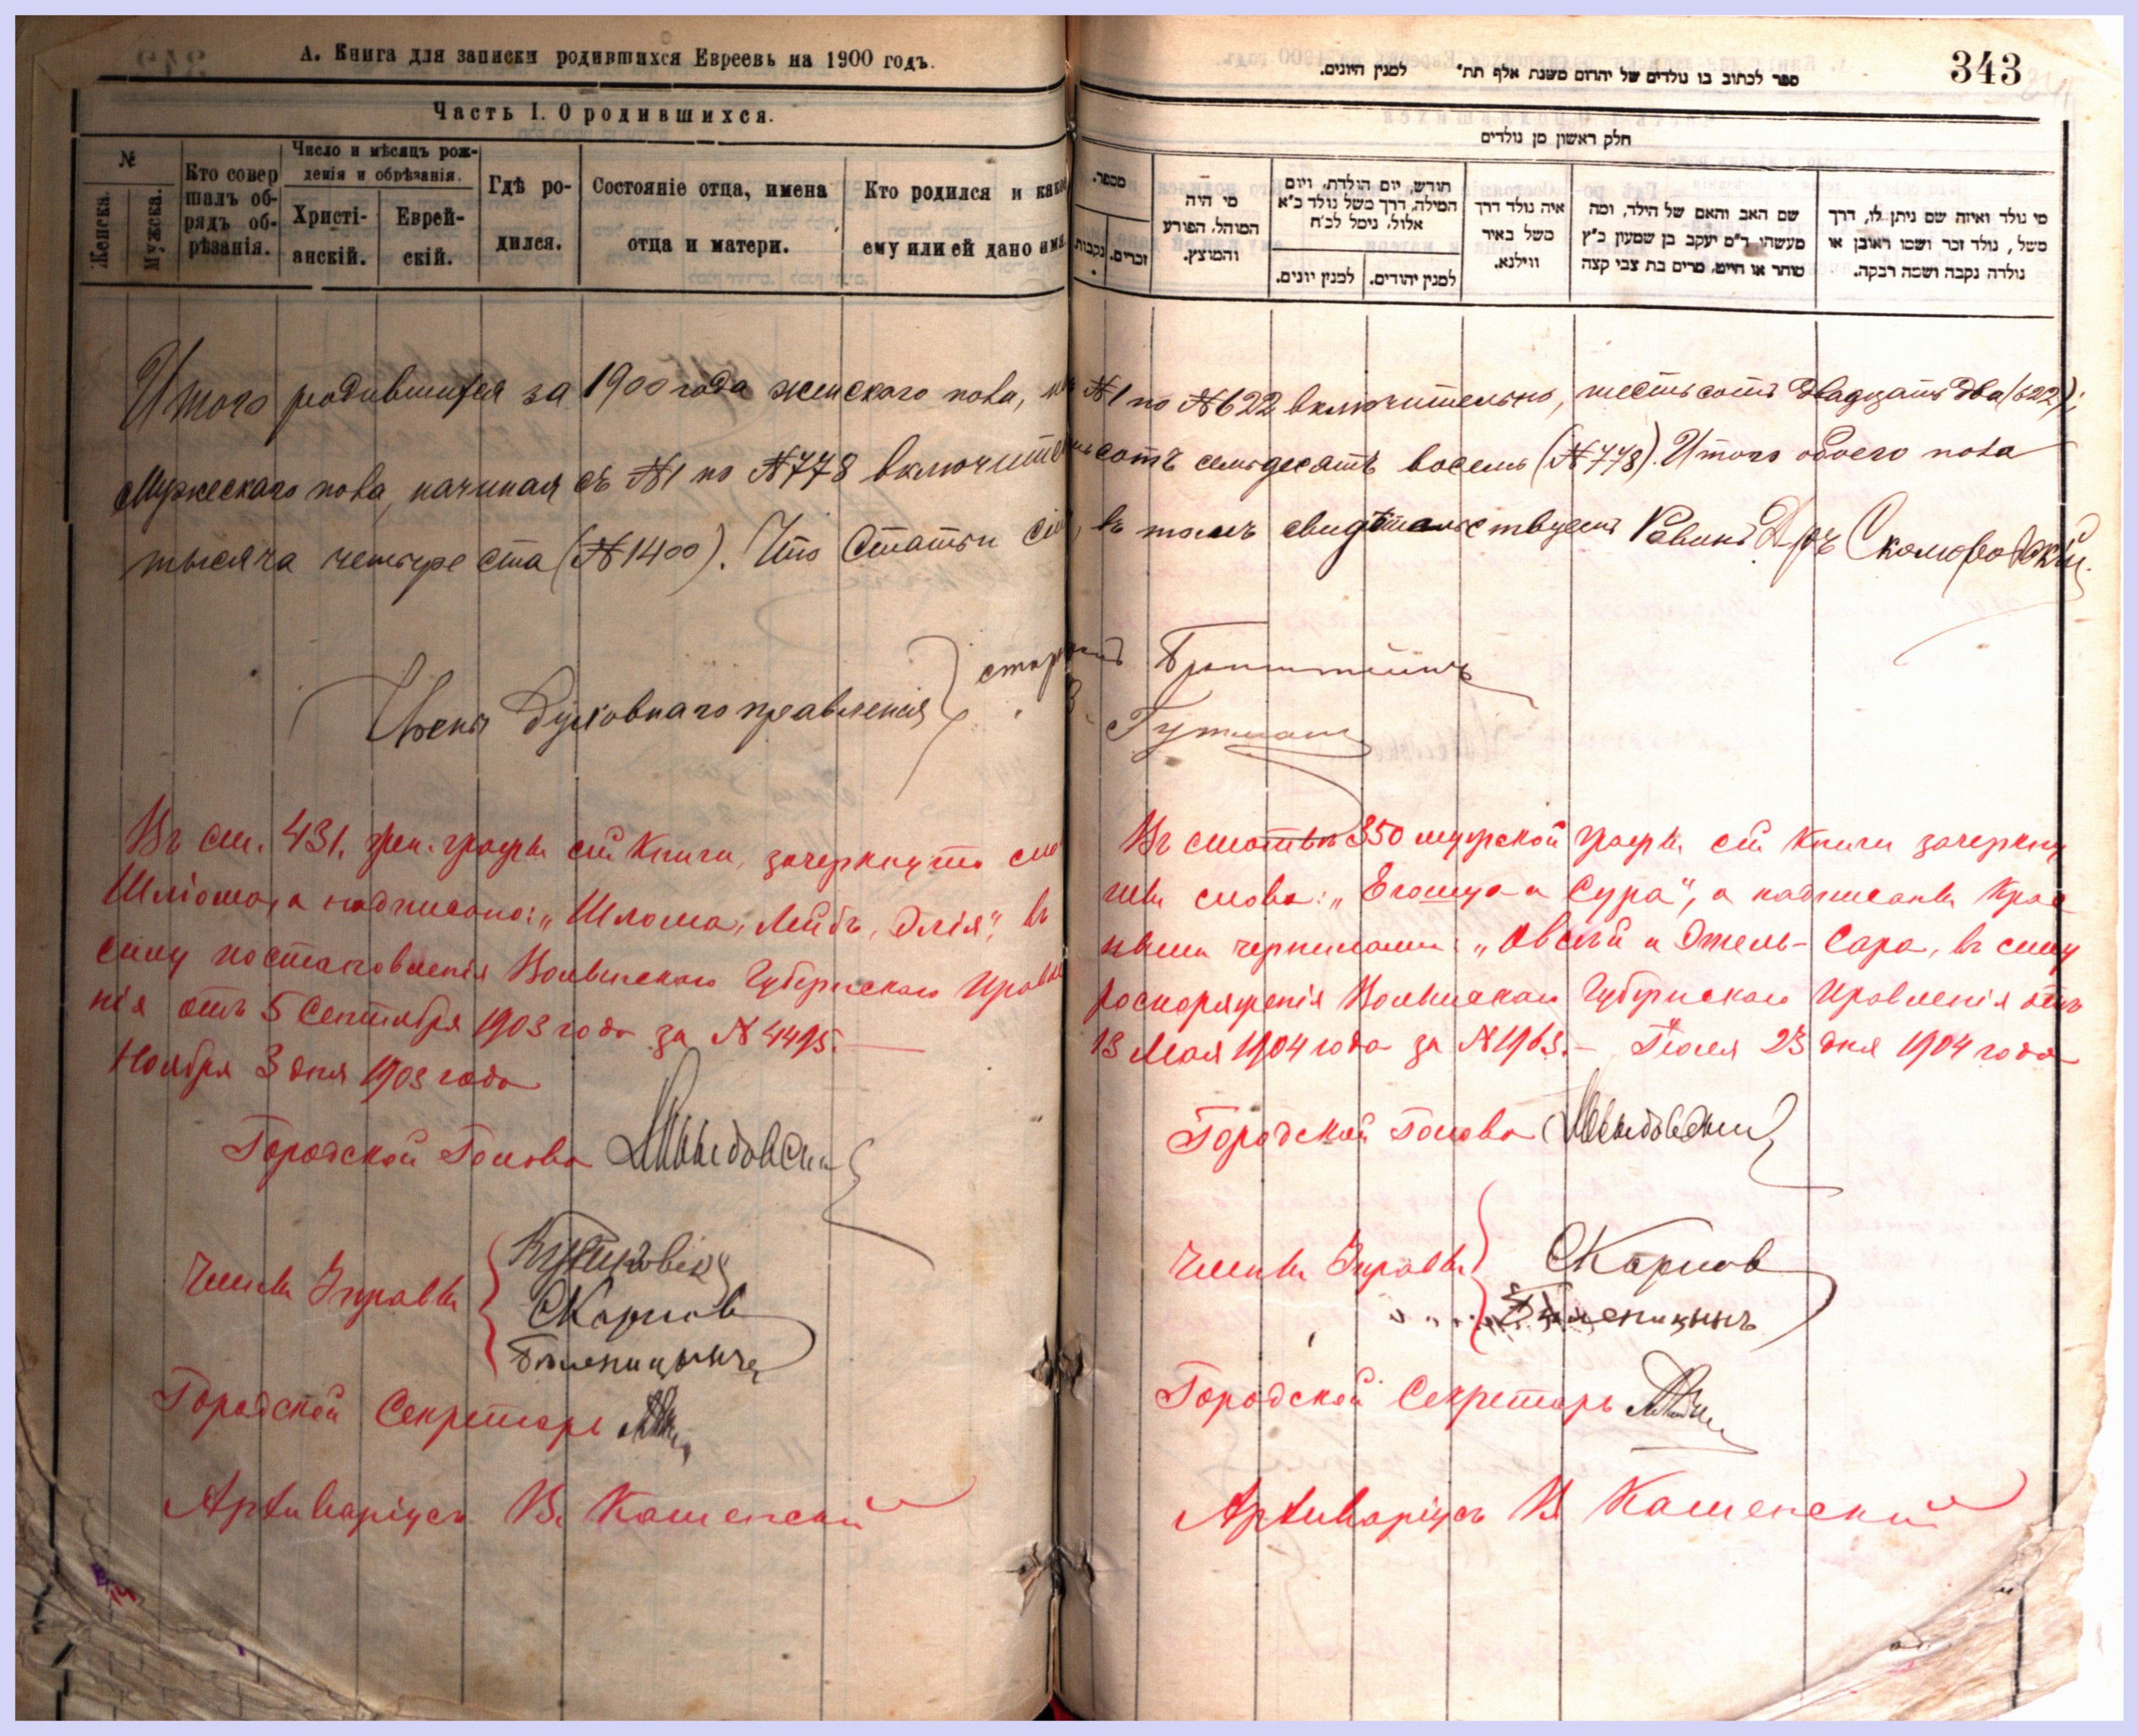 А. Книга для записки родившихся Евреевъ на 1900 годъ.
Часть I. О родившихся.
№
Женска.
Мужска.
Кто совер
шалъ об-
рядъ об-
рѣзанія.
Число и мѣсяцъ рож-
денія и обрѣзанія.
Христі-
анскій.
Еврей-
скій.
Гдѣ ро-
дился.
Состояніе отца, имена
отца и матери.
Кто родился и како
ему или ей дано имя
343
ספר לכתוב בו נולדים של יהדום משנת אלף תת״ למנין היונים.
חלק ראשון מן נולדים
מספר.
נקבות
זכרים.
מי היה
המוהל, הפורע
והמוצץ.
חודש, יום הולדת, ויום
המילה, דרך משל נולד כ״א
אלול, נימל לכ״ח
למנין יהודים.
למנין יונים.
איה נולד דרך
משל באיר
ווילנא.
שם האב והאם של הילד, ומה
מעשהו ד״מ יעקב בן שמעון כ״ץ
סוחר או חייט, מרים בת צבי קצה
מי נולד ואיזה שם ניתן לו, דרך
משל, נולד זכר ושמו ראובן או
נולדה נקבה ושמה רבקה.
Итого родившихся за 1900 года женского пола, №1 по №622 включительно, шестьсотъ двадцать два (622);
Мужескаго пола, начиная съ №1 по №778 включитель сотъ семьдесятъ восемь (№778). Итого обоего пола
тысяча четыре ста (№1400). Что статьи сіи, въ томъ свидѣтельствуетъ Равинъ Д-ръ Скомаровскій
Члены Духовнаго правленія старост Бронштейнъ
Гутман
Въ ст. 431. жен. графы сей Книги, зачеркнуто сло
Шліома, а надписано: „Шлома, Лейбъ, Элія", въ
силу постановленія Волынскаго Губернскаго Правле
нія отъ 5 Сентября 1903 года за № 4495.
Ноября 3 дня 1903 года
Городской Голова
Члены Управы
СКарпов
Городской Секретарь
Архиваріусъ В. Каменской
Въ статьи 350 мужской графы сей Книги зачеркну
ты слова: „Егошуа и Сура", а надписаны Крас
ными чернилами: „Овсей и Этель-Сара, въ силу
распоряженія Волынскаго Губернскаго Правленія отъ
13 Мая 1904 года за №1963. — Іюля 23 дня 1904 года
Городской Голова
Члены Управы СКарпов
Городской Секретарь
Архиваріусъ В Каменской